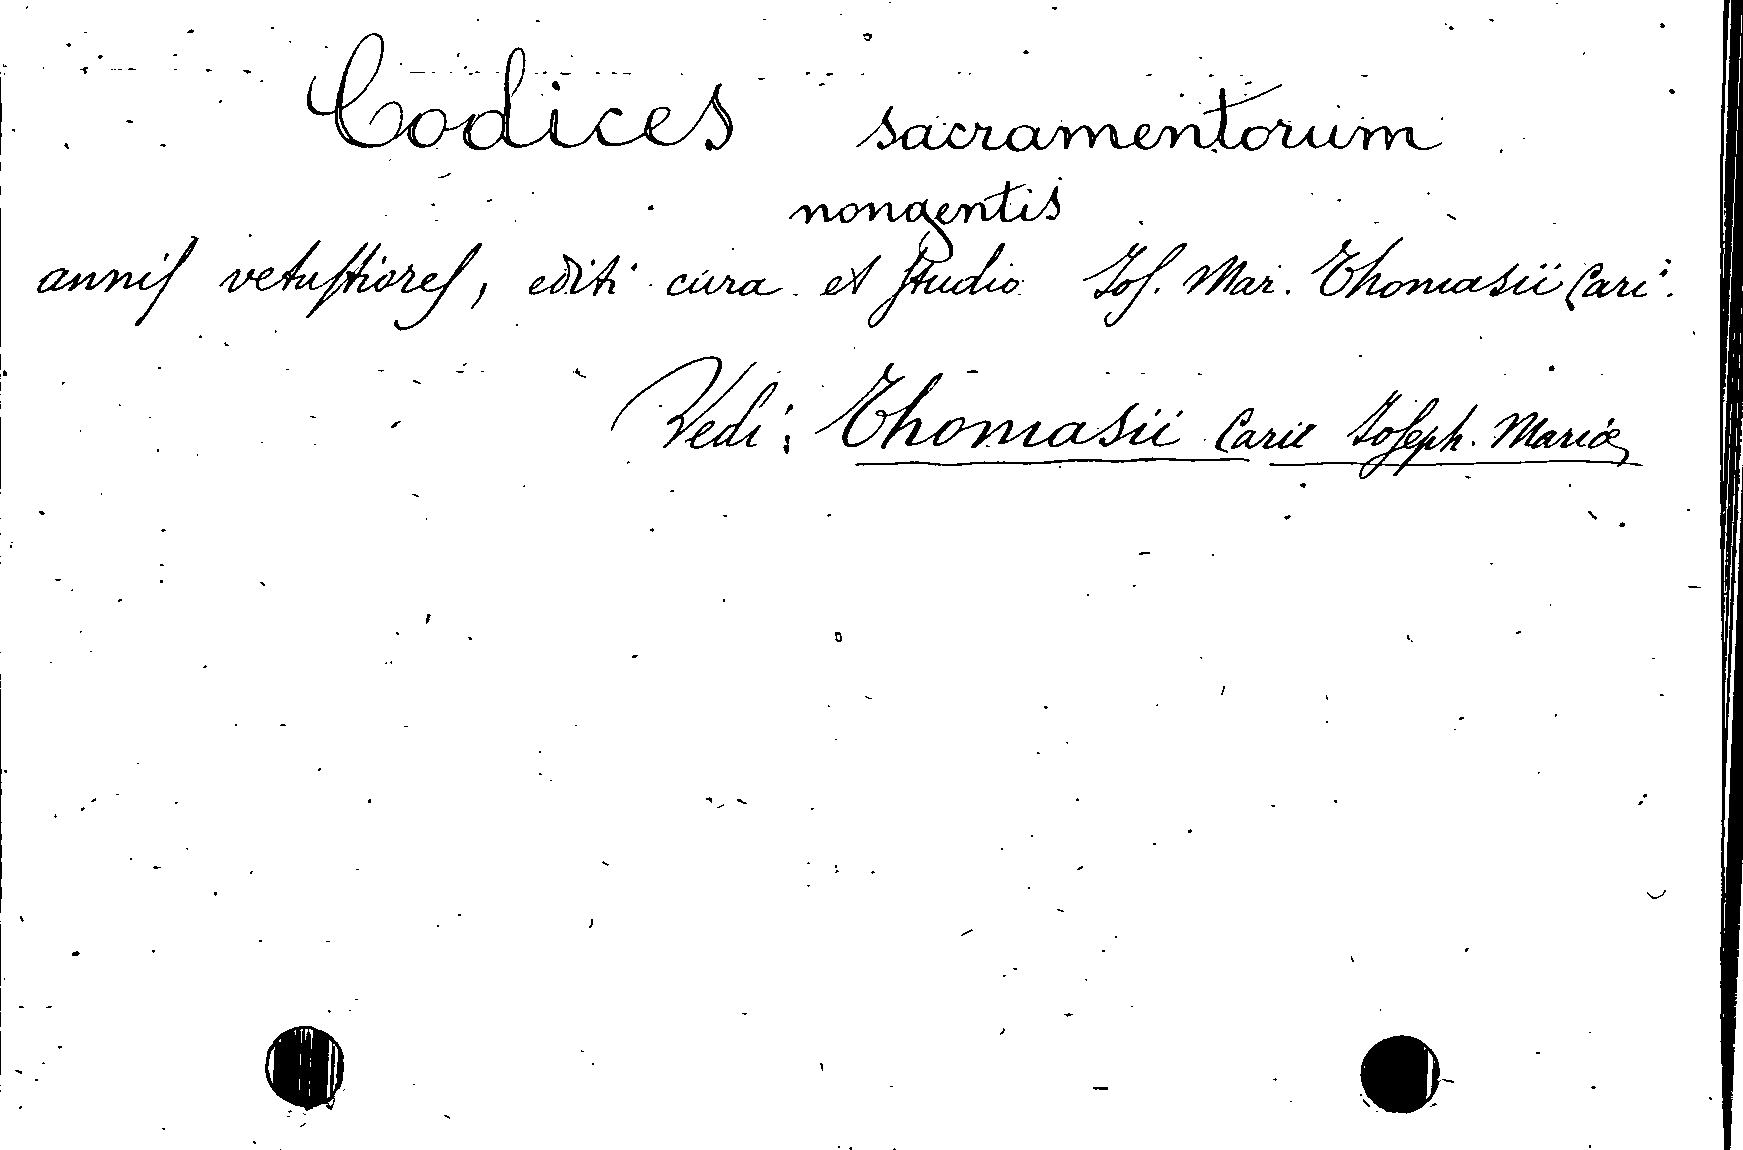 Codices sacramentorum
nongentis
annis vetustiores, editi cura et studio Jos. Mar. Thomasii Cari.
Vedi: Thomasii Carii Joseph. Mariæ